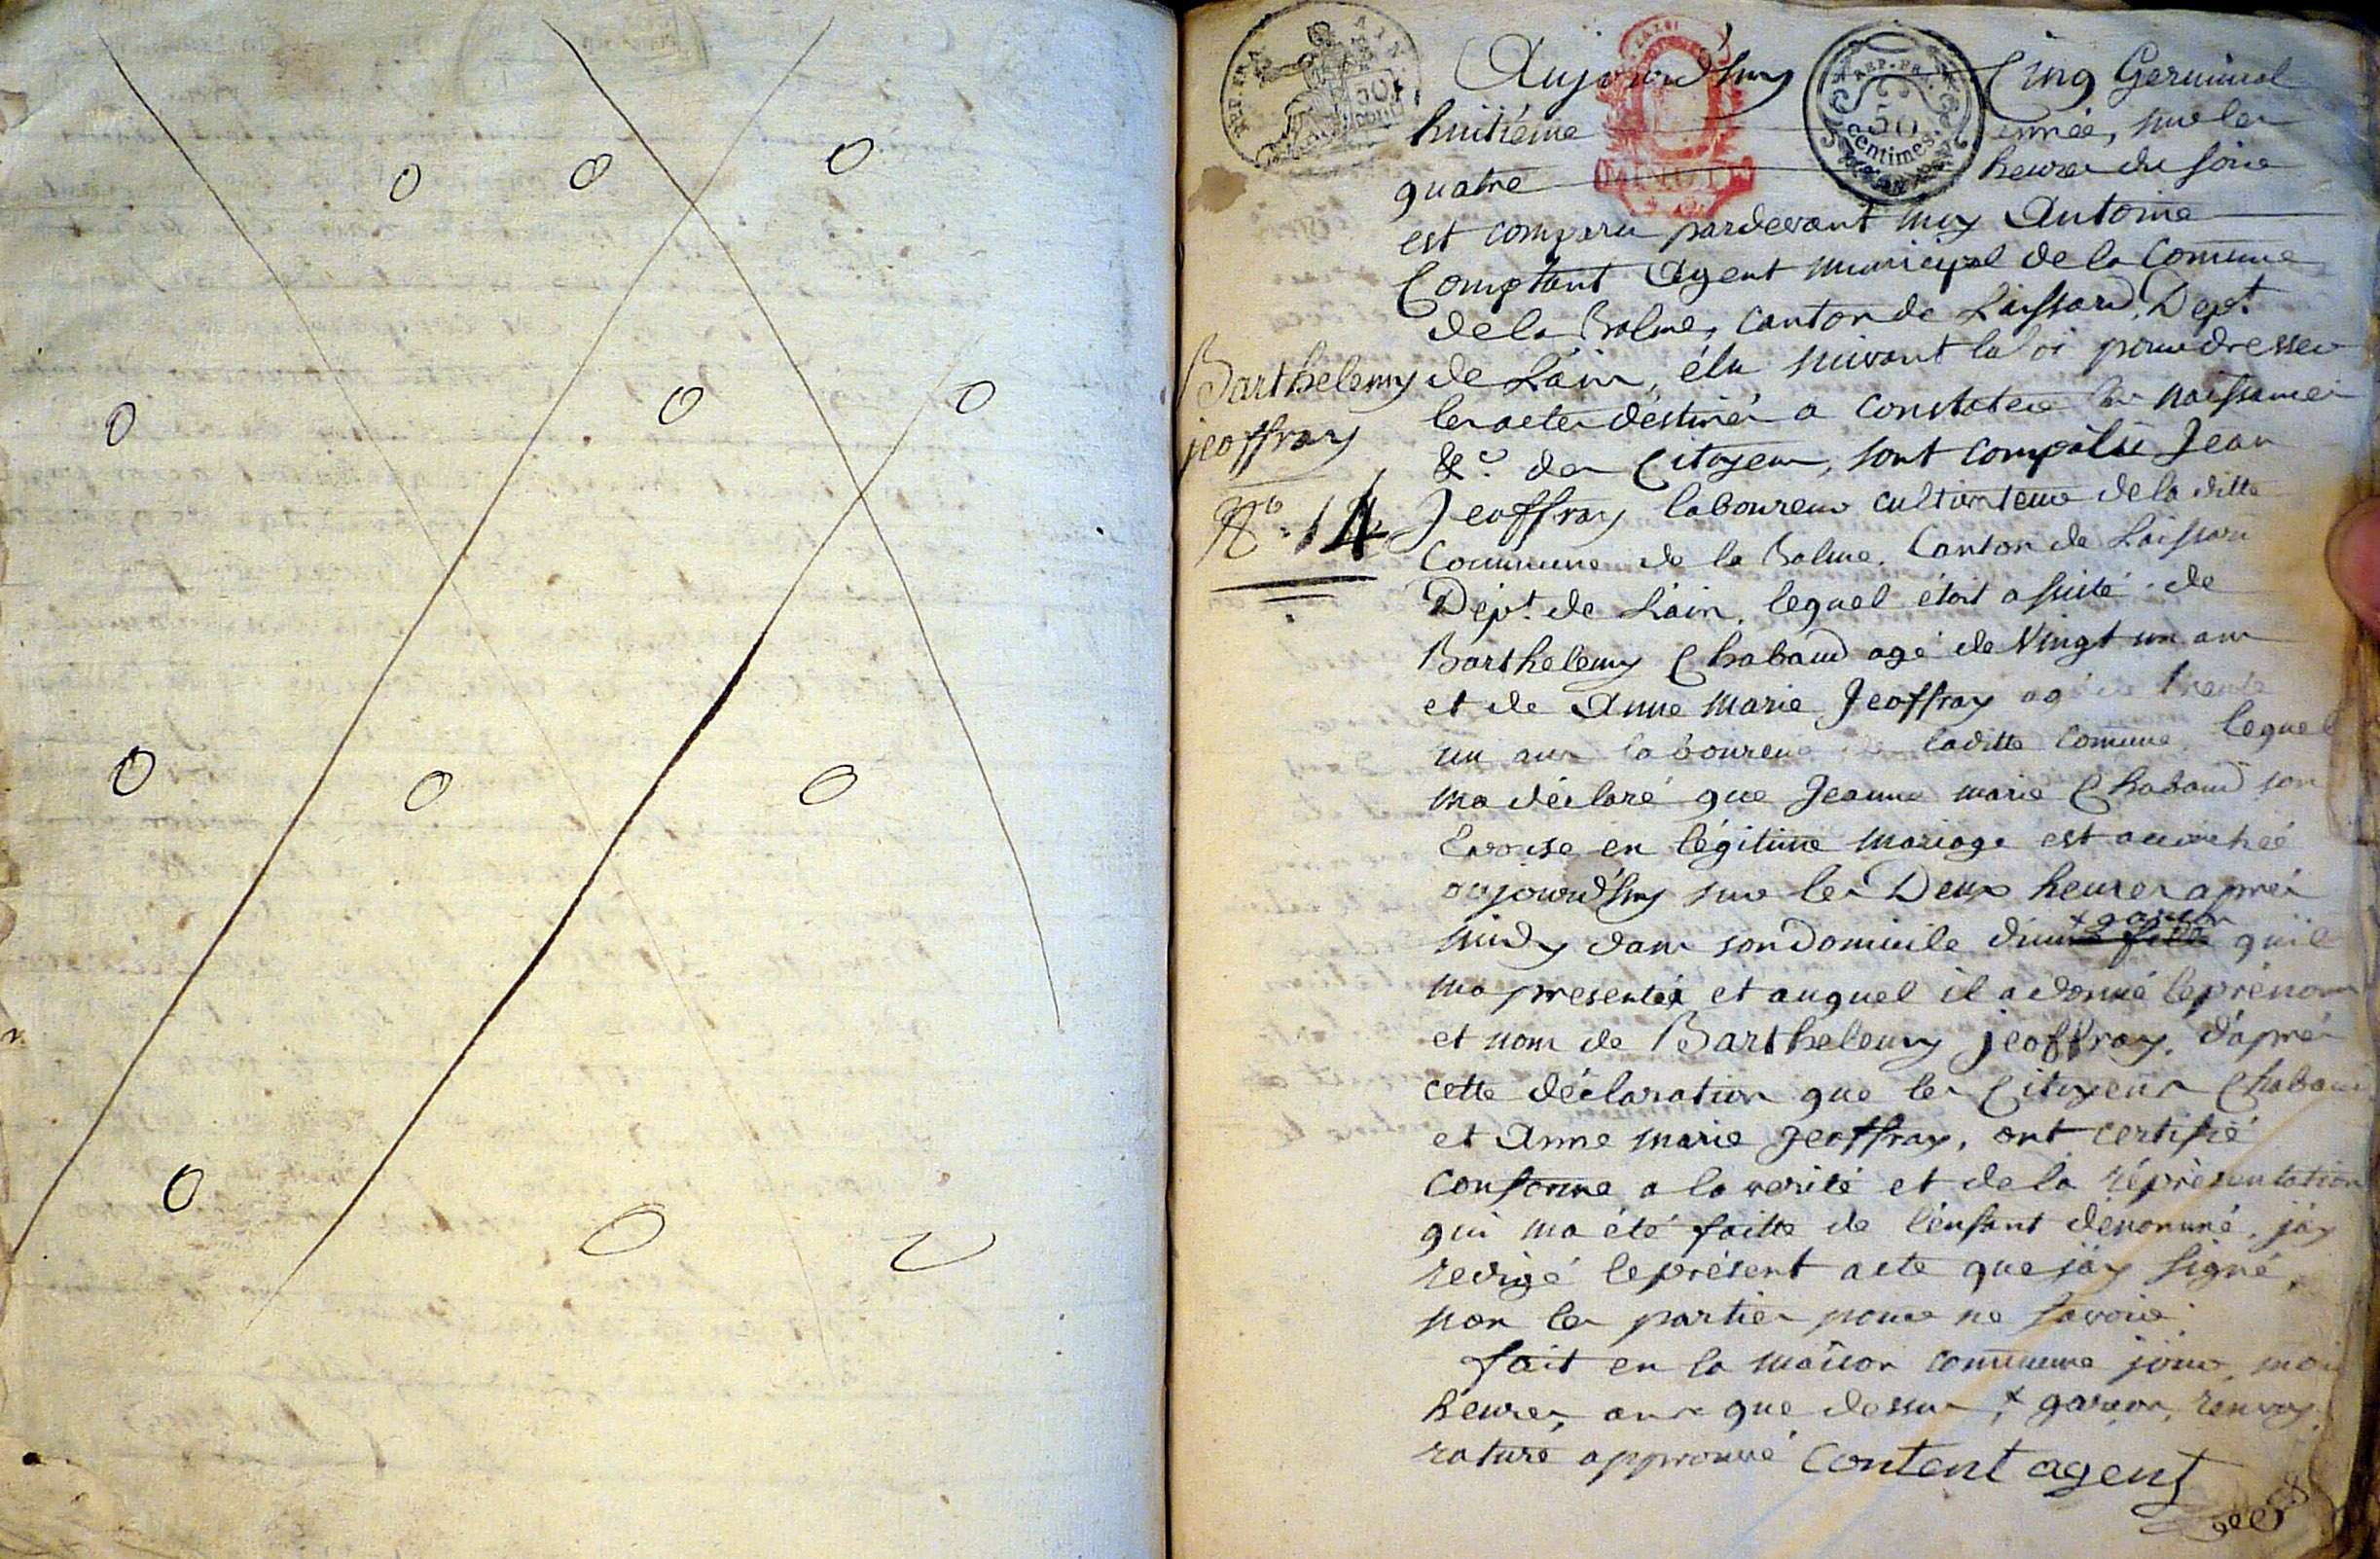 Aujourd'huy Cinq Germinal
huitiéme année, sur les
quatre heures du soire
est comparu pardevant moy Antoine
Comptant Agent municipal de la Comune
de la Balme, canton de Laissard, Dept
de Lain, élu suivant la loi pour dresser
les actes déstinés a constater les naissances
&c. des Citoyens, sont Jean
Jeoffray laboureur cultivateur de la ditte
Commune de la Balme. Canton de Laissard
Dept. de Lain, lequel étoit assisté de
Barthelemy Chabaud agé de Vingt un ans
et de Anne Marie Jeoffray agée trente
un ans laboureur laditte Comune, lequel
ma déclaré que Jeanne marie Chabaud son
Epouse en légitime mariage est accouchée
aujourd'huy sur les Deux heures aprés
midy dans son Domicile d'une fille + garcon quil
ma presentée et auquel il a donné le prénom
et nom de Barthelemy jeoffray, d'aprés
cette déclaration que les Citoyens Chabaud
et Anne marie Jeoffray, ont certifié
Conforme a la verité et de la réprésentation
qui ma été faitte de l'enfant dénommé, j'ay
redigé le présent acte que j'ay signé,
non les parties pour ne savoir
fait en la maison commune jour, mois
heures, an que dessus, + garcon, renvoy
raturé approuvé Content agent
Barthelemy
jeoffray
No. 14
REP. FRA
AIN
50
CENT
LA LOI
MINUTE
REP. FRA.
50
centimes.